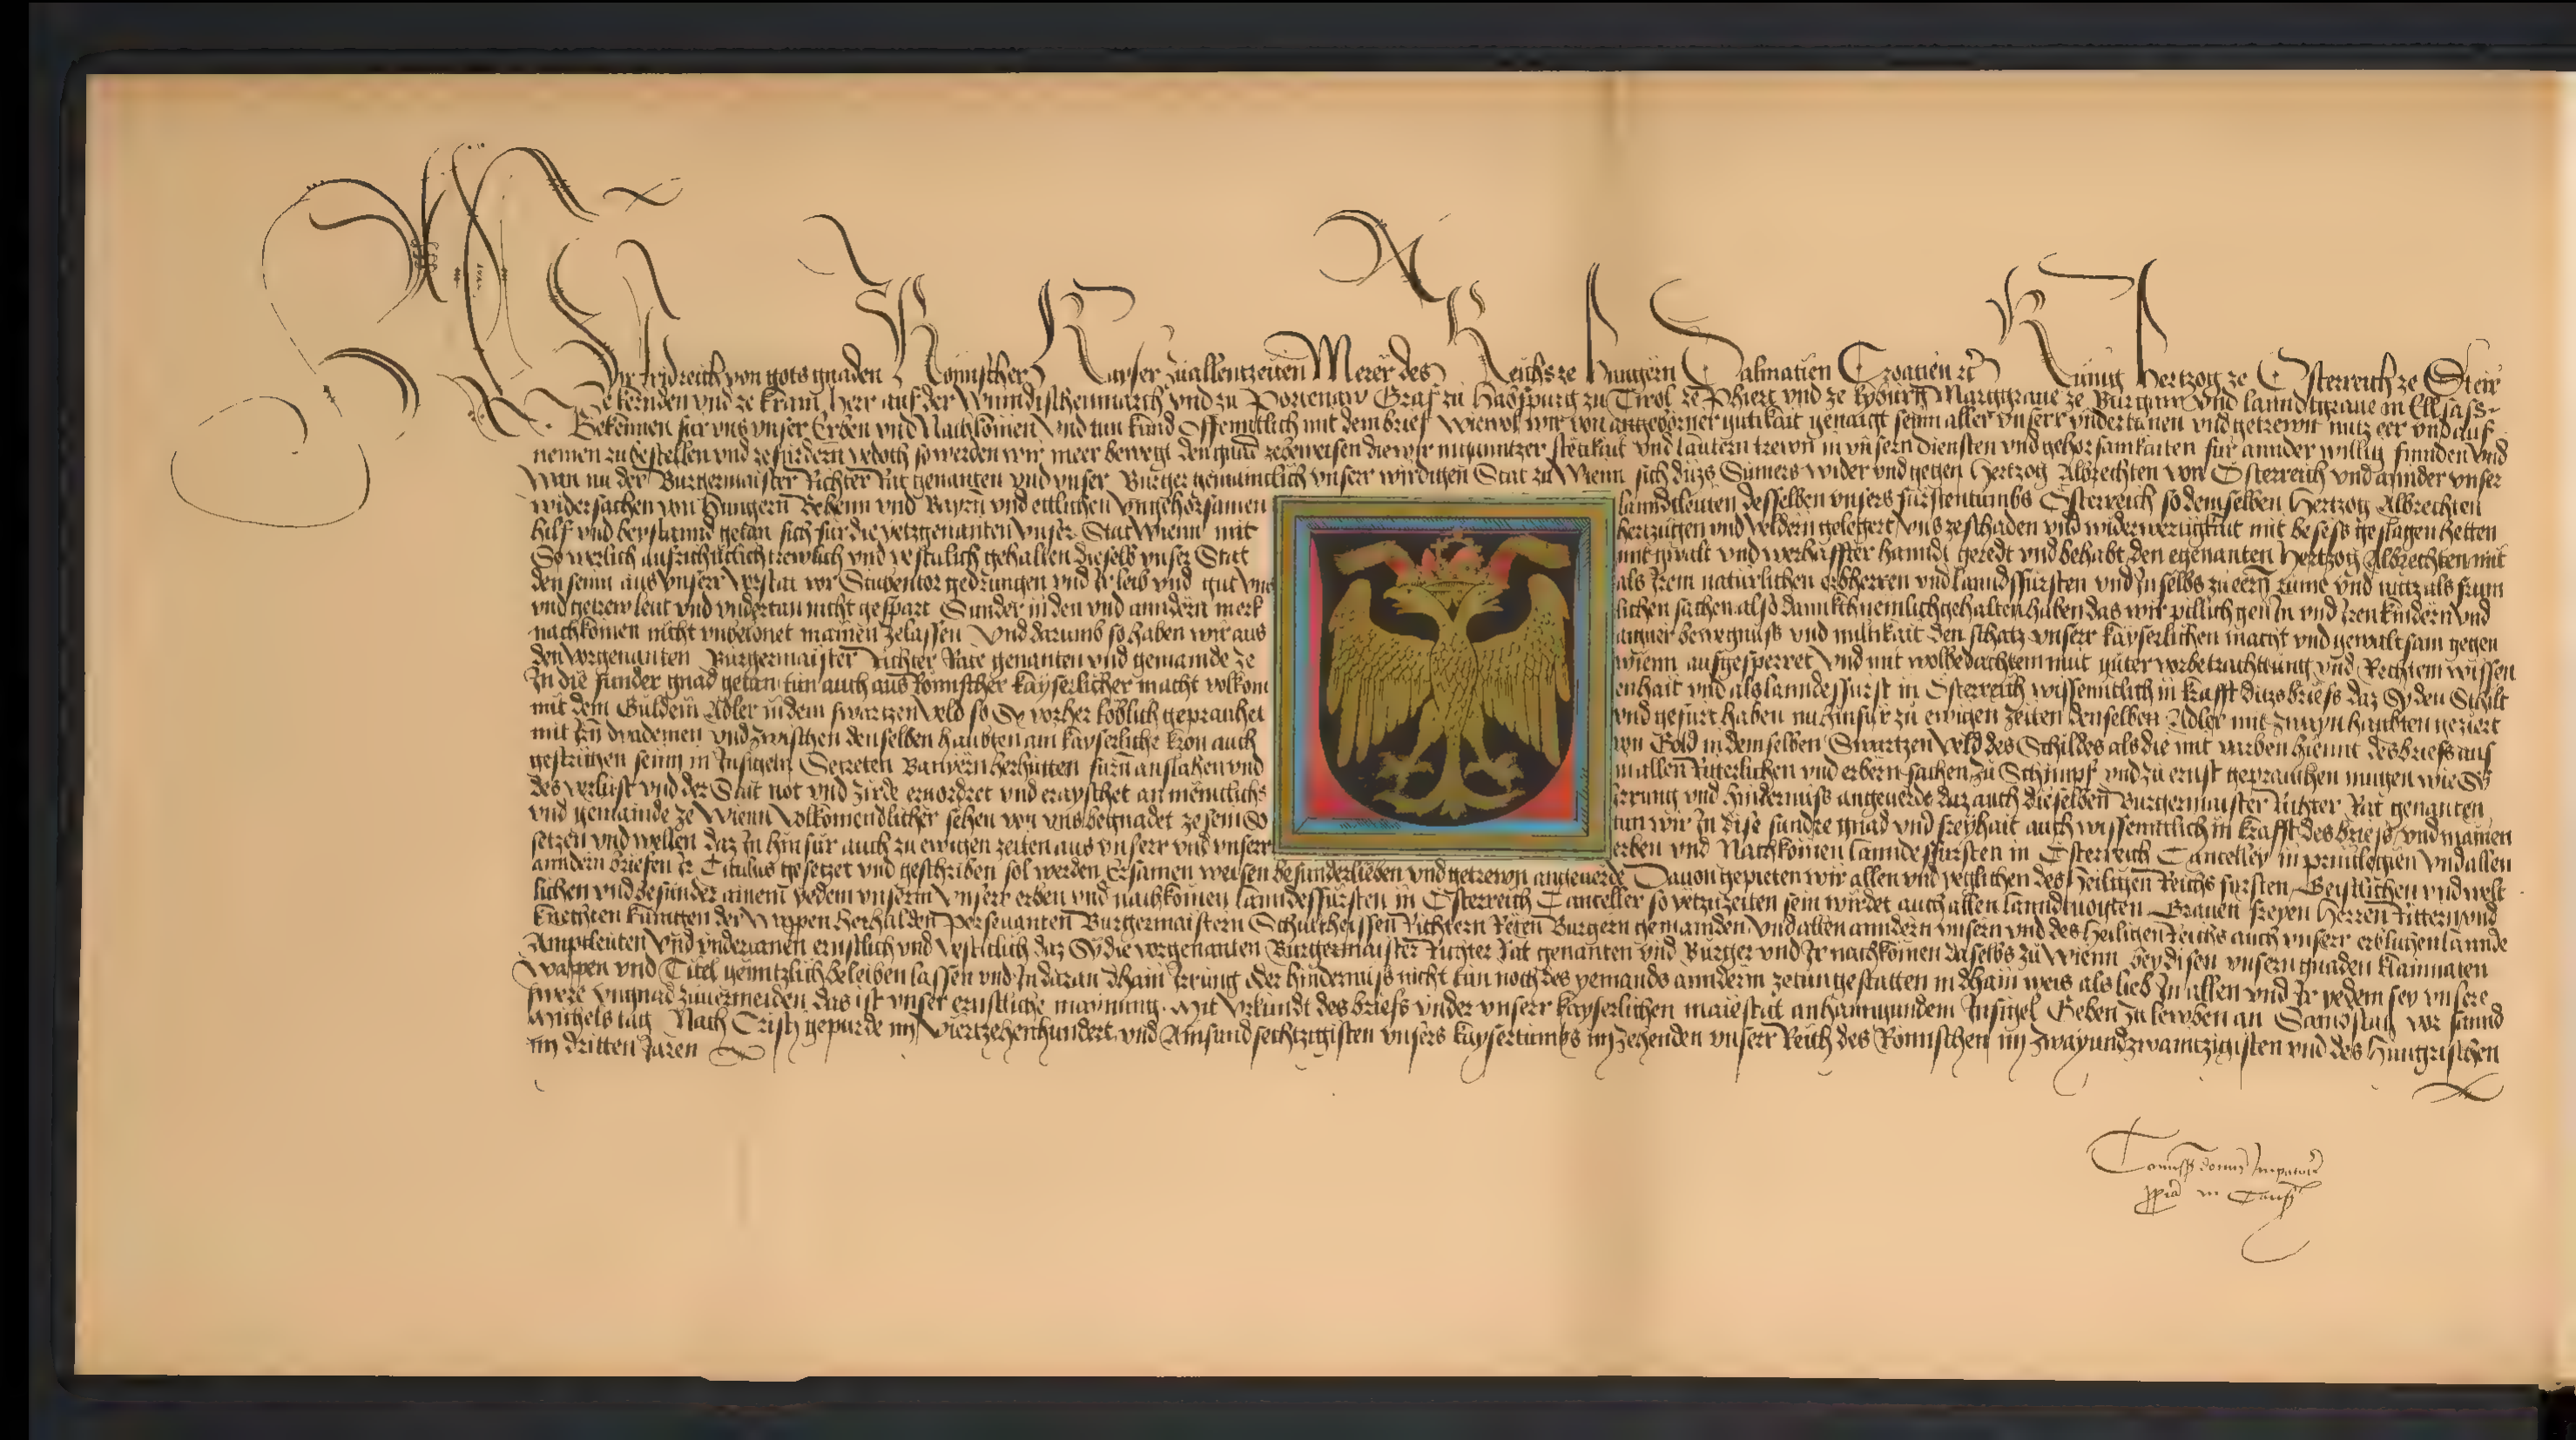 Wir Fridreich von gots gnaden Römischer Kayser zuallentzeiten Merer des Reichs ze Hungern Dalmatien Croatien rc Kunig Hertzog ze Österreich ze Steir
ze kernden vnd ze krain Herr auf der Winndischenmarch vnd zu Portenaw Graf zu Habspurg zu Tirol ze Phiert vnd ze kyburg Marggraue ze Burgaw vnd lanndtgraue in Ellsass
Bekennen für vns vnser Erben vnd Nachkomen vnd tun kund Offenntlich mit dem brief Wiewol wir von angeborner gutikait genaigt seinn aller vnserr vndertanen vnd getrewn nutz eer vnd auf
nemen zubestellen vnd ze fürdern yedoch so werden wir meer bewegt den gnad zebeweisen die wir mit gantzer stetikait vnd lautern trewn in vnsern diensten vnd gehorsamkaiten für annder willig finnden vnd
Wan nu der Burgermaister Richter Rat genanten vnd vnser Burger gemainclich vnserr wirdigen Stat zu Wienn sich ditzs Sumers wider vnd gegen Hertzog Albrechten von Österreich vnd annder vnser
widersachen von Hungern Behem vnd Bayrn vnd ettlichen vngehorsamen lanndtleuten desselben vnsers fürstentumbs Österreich so demselben Hertzog Albrechten
hilf vnd beystannd getan sich für die yetzgenanten vnser Stat Wienn mit hertzügen vnd veldern gelegert vns zeschaden vnd widerwertigkait mit besess geslagen hetten
So werlich aufrichticlich trewlich vnd vesticlich gehallten dieselb vnser Stat mit gwalt vnd werhaffter hannd geredt vnd behabt den egenanten Hertzog Albrechten mit
den seinn aus vnserr Vorstat vor Stubentor gedrungen vnd Ir leib vnd gut vns als Irem natürlichen erbherren vnd lanndsfürsten vnd In selbs zu eern rume vnd nutz als frum
vnd getrew leut vnd vndertan nicht gespart Sunder in den vnd anndern merk lichen sachen also dannkchnemlich gehalten haben das wir pillich gen In vnd Iren kindern vnd
nachkomen nicht vnbelonet mainen zelassen Vnd darumb so haben wir aus aigner bewegnuss vnd miltikait den schatz vnserr kayserlichen macht vnd gewaltsam gegen
den vorgenanten Burgermaister Richter Rate genanten vnd gemainde ze wienn aufgesperret Vnd mit wolbedachtem mut guter vorbetrachttung vnd Rechtem wissen
In die sunder gnad getan tun auch aus Römischer kayserlicher macht volkom enhait vnd als lanndesfürst in Österreich wissenntlich in krafft ditzs briefs daz Sy den Schilt
mit dem Guldein Adler in dem swartzen Veld so Sy vorher löblich gepraucht vnd gefurt haben nu hinfür zu ewigen zeiten denselben Adler mit zwayn haubten geziert
mit Irn dyademen vnd zwischen denselben haubten ain kayserliche kron auch von Gold in demselben Swartzen Veld des Schildes als die mit varben hiemit des briefs aus
gestrichen seinn in Insigeln Secreten Banyern herhütten fürn anslahen vnd in allen Ritterlichen vnd erbern sachen zu Schimpf vnd zu ernst geprauchen mugen wie Sy
des verlust vnd der Stat not vnd zirde eruordret vnd erayschet an menniclichs Irrung vnd hindernuss angeuerde daz auch dieselben Burgermaister Richter Rat genanten
vnd gemainde ze Wienn Volkomendlicher sehen von vns begnadet ze sein So tun wir In dise sundre gnad vnd freyhait auch wissenntlich in krafft des briefs vnd mainen
setzen vnd wellen daz In hinfür auch zu ewigen zeiten aus vnserr vnd vnserr erben vnd Nachkomen lanndesfürsten in Österreich Cancelley in priuilegien vnd allen
anndern briefen Ir Titulus gesetzet vnd geschriben sol werden Ersamen weisen besunderlieben vnd getrewn angeuerde Dauon gepieten wir allen vnd yeglichen des Heiligen Reichs fürsten Geistlichen vnd welt
lichen vnd besunder ainem yedem vnserm vnserr erben vnd nachkomen lanndesfürsten in Österreich Cantzeller so yetzuzeiten sein wirdet auch allen lanndtuogten Grauen freyen Herren Rittern vnd
knechten künigen der Wappen Herhalden Perseuanten Burgermaistern Schultheissen Richtern Reten Burgern gemainden vnd allen anndern vnsern vnd des Heiligen Reichs auch vnserr erblichen lannde
Ambtleuten vnd vndertanen ernstlich vnd vesticlich daz Sy die vorgenanten Burgermaister Richter Rat genanten vnd Burger vnd Ir nachkomen daselbs zu Wienn bey disen vnsern gnaden klainaten
Wappen vnd Titel genntzlich beleiben lassen vnd In daran dhain Irrung oder hindernuss nicht tun noch des yemands anndern zetun gestatten in dhain weis als lieb In allen vnd Ir yedem sey vnsere
swere vngnad zuuermeiden das ist vnser ernstliche mainung. Mit vrkundt des briefs vnder vnserr kayserlichen maiestat anhanngundem Insigel Geben zu lewben an Sambstag vor sannd
Michels tag Nach Cristi gepurde im Viertzehenhundert vnd Ainsundsechtzigisten vnsers kaysertumbs im zehenden vnserr Reich des Römischen im zwayundzwaintzigisten vnd des Hungrischen
im dritten Jaren